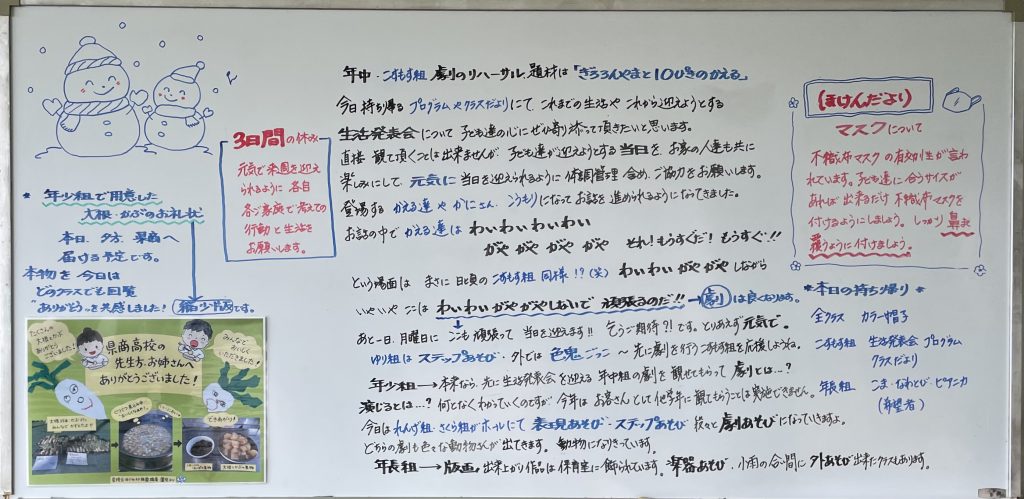 年中・こすもす組 劇のリハーサル、題材は「ぎろろんやまと10ぴきのかえる」
今日 持ち帰る プログラムやクラスだよりにて これまでの生活や これから迎えようとする
生活発表会について 子ども達の心にぜひ寄り添って頂きたいと思います。
直接 観て頂くことは出来ませんが、子ども達が迎えようとする 当日を お家の人達も共に
楽しみにして、元気に 当日を迎えられるように 体調管理 含め、ご協力をお願いします。
登場する かえる達や かにさん、こうもりになってお話を進められるようになってきました。
お話の中で かえる達は わいわいわいわい
がや がや がや がや それ!もうすぐだ!もうすぐ!!
という場面は まさに 日頃の こすもす組 同様!?(笑) わいわい がやがや しながら
いやいや ここは わいわいがやがやしないで 頑張るのだ!! → 劇 は良くなります。
あと一日、月曜日に ここも 頑張って 当日を迎えます!! 乞うご期待?!です。とりあえず元気で。
ゆり組は ステップあそび・外では 色鬼ごっこ 〜 先に劇を行うこすもす組を応援しようね。
年少組→ 本来なら、先に 生活発表会を迎える 年中組の劇を 観せてもらって 劇とは…?
演じるとは…? 何となくわかっていくのですが 今年は お客さんとして 他学年に観てもらうことは実施できません。
今日は れんげ組・さくら組が ホールにて 表現あそび・ステップあそび 段々と 劇あそび になっていきますよ。
どちらの劇も色々な動物さんが 出てきます。動物になりきっています。
年長組→ 版画。出来上がり作品は 保育室に飾られています。楽器あそび、小雨の合い間に 外あそび 出来たクラスもあります。
3日間の休み
元気で来週を迎え
られるように 各自
各ご家庭で考えての
行動と生活を
お願いします。
* 年少組で用意した
大根・かぶのお礼状
本日、夕方、県商へ
届ける予定です。
本物を今日は
どのクラスでも回覧
"ありがとう"を共感しました! 縮少版です。
たくさんの
大根とかぶ
ありがとう
ございました!
県商高校の
先生方、お姉さんへ
ありがとうございました!
みんなで
おいしく
いただきました!
できあがり!
(ほけんだより)
マスクについて
不織布マスクの有効性が言わ
れています。子ども達に合うサイズが
あれば 出来るだけ 不織布マスクを
付けるようにしましょう。しっかり 鼻まで
覆うように付けましょう。
*本日の持ち帰り*
全クラス カラー帽子
こすもす組 生活発表会 プログラム
クラスだより
年長組 こま・なわとび・ピアニカ
(希望者)